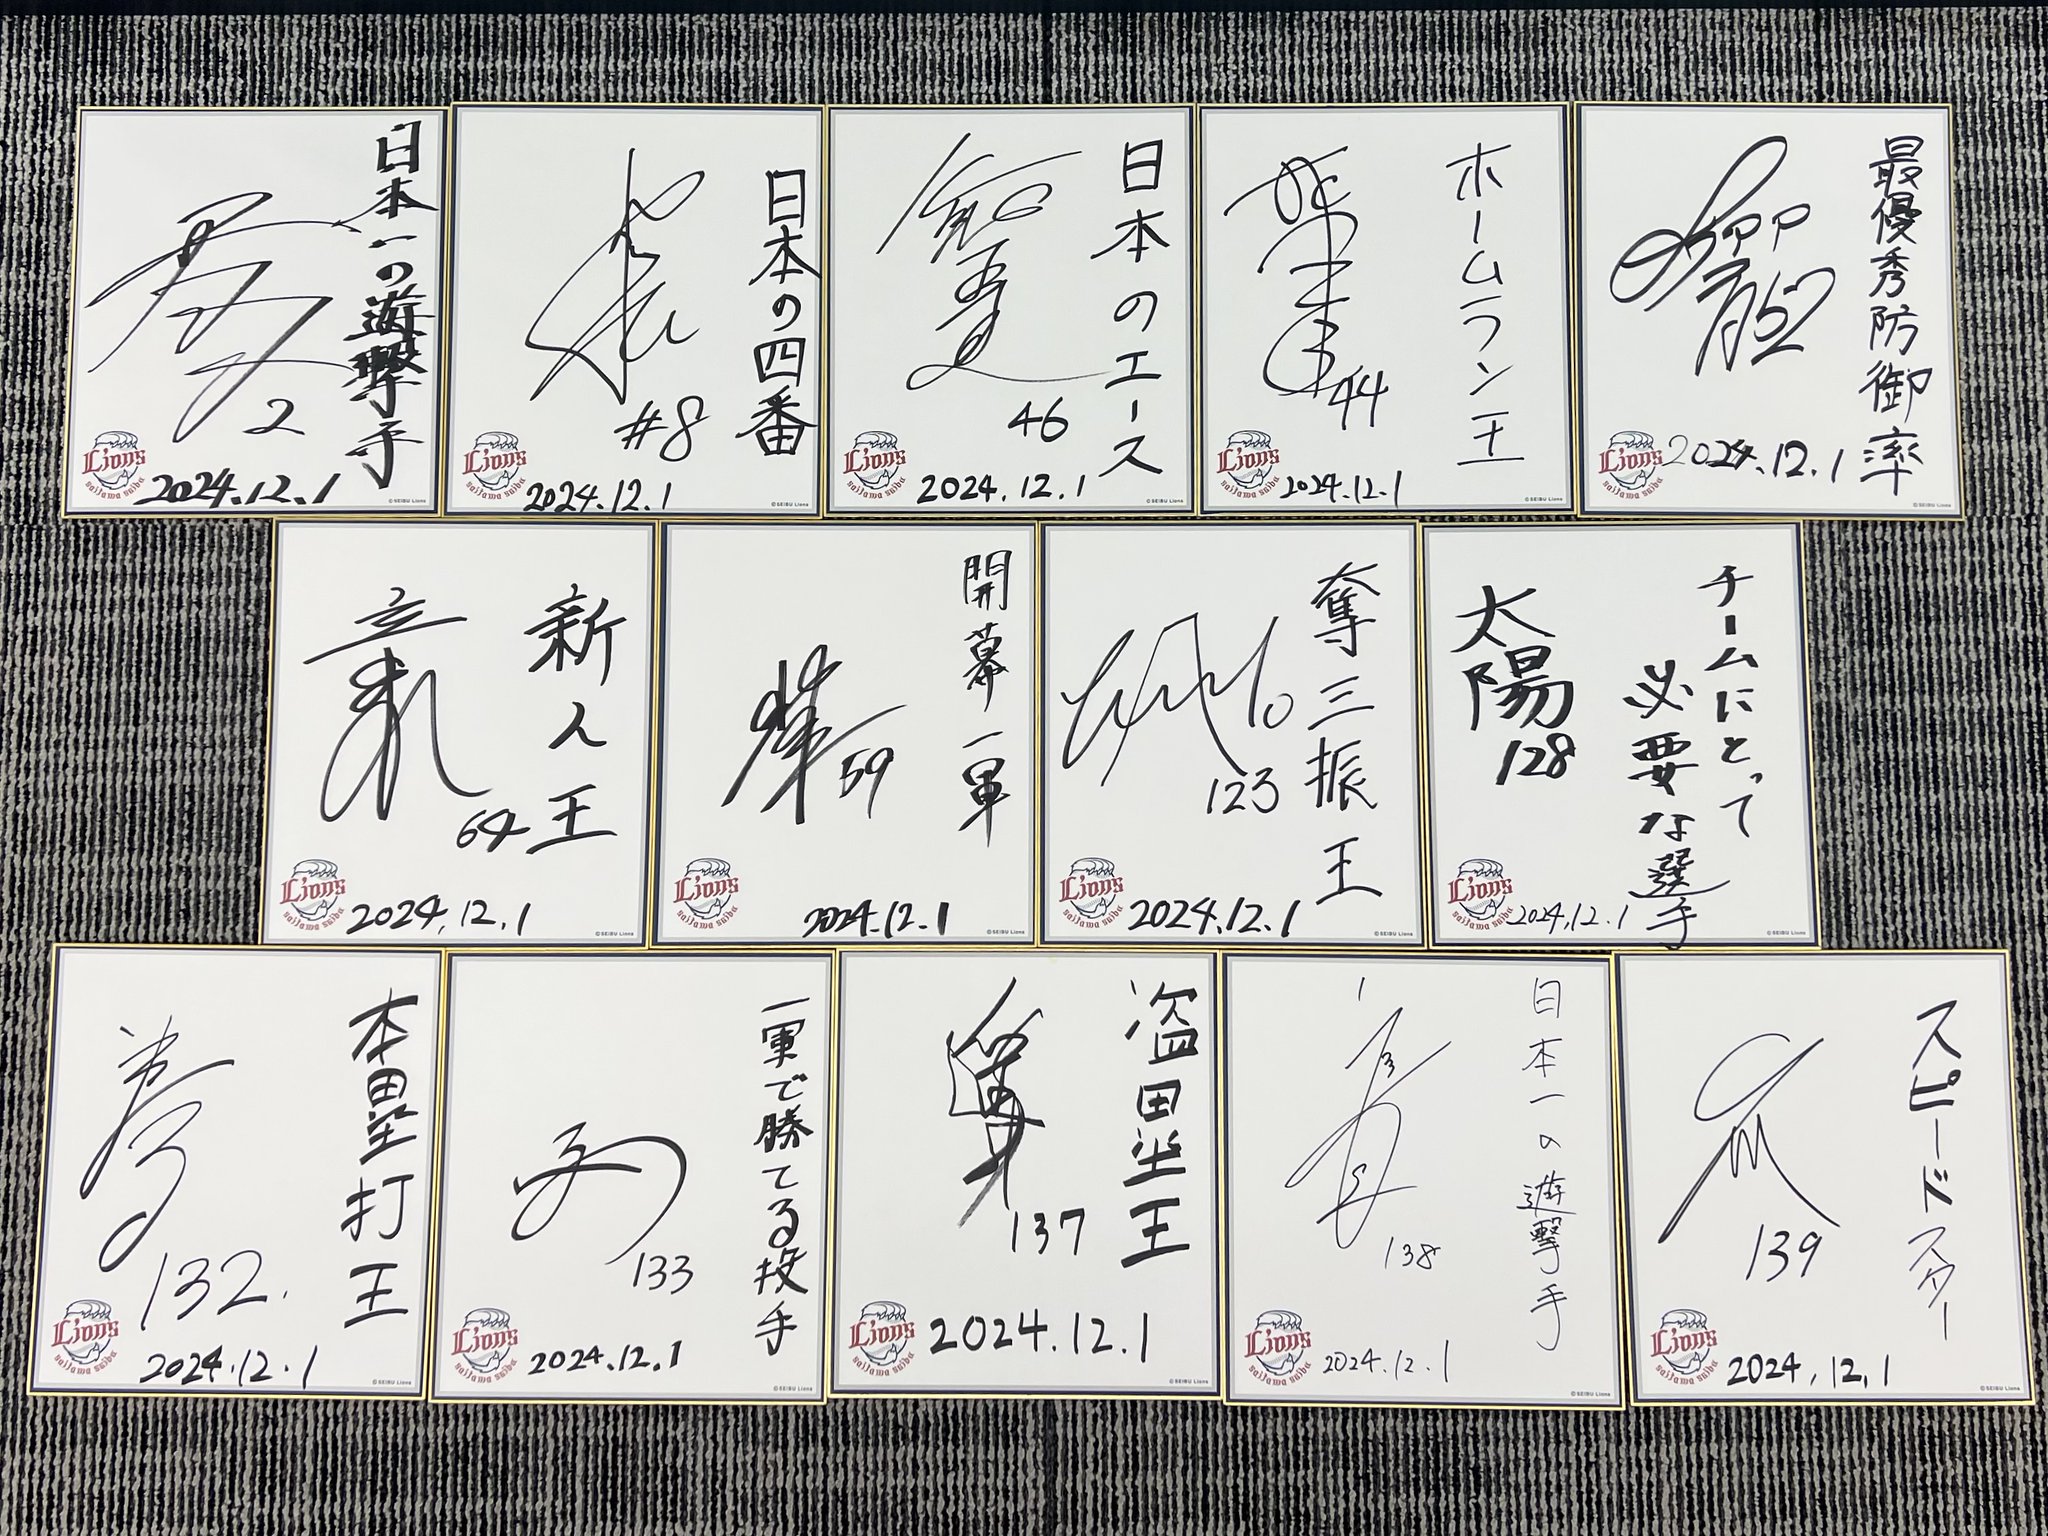 日本一の遊撃手
2
Lions
saitama seibu
2024.12.1
©SEIBU Lions
日本の四番
#8
Lions
saitama seibu
2024.12.1
©SEIBU Lions
日本のエース
46
Lions
saitama seibu
2024.12.1
©SEIBU Lions
ホームラン王
44
Lions
saitama seibu
2024.12.1
©SEIBU Lions
最優秀防御率
Lions
saitama seibu
2024.12.1
©SEIBU Lions
新人王
64
Lions
saitama seibu
2024.12.1
©SEIBU Lions
開幕一軍
59
Lions
saitama seibu
2024.12.1
©SEIBU Lions
奪三振王
123
Lions
saitama seibu
2024.12.1
©SEIBU Lions
チームにとって
必要な選手
太陽
128
Lions
saitama seibu
2024.12.1
©SEIBU Lions
本塁打王
132.
Lions
saitama seibu
2024.12.1
©SEIBU Lions
一軍で勝てる投手
133
Lions
saitama seibu
2024.12.1
©SEIBU Lions
盗塁王
137
Lions
saitama seibu
2024.12.1
©SEIBU Lions
日本一の遊撃手
138
Lions
saitama seibu
2024.12.1
©SEIBU Lions
スピードスター
139
Lions
saitama seibu
2024.12.1
©SEIBU Lions